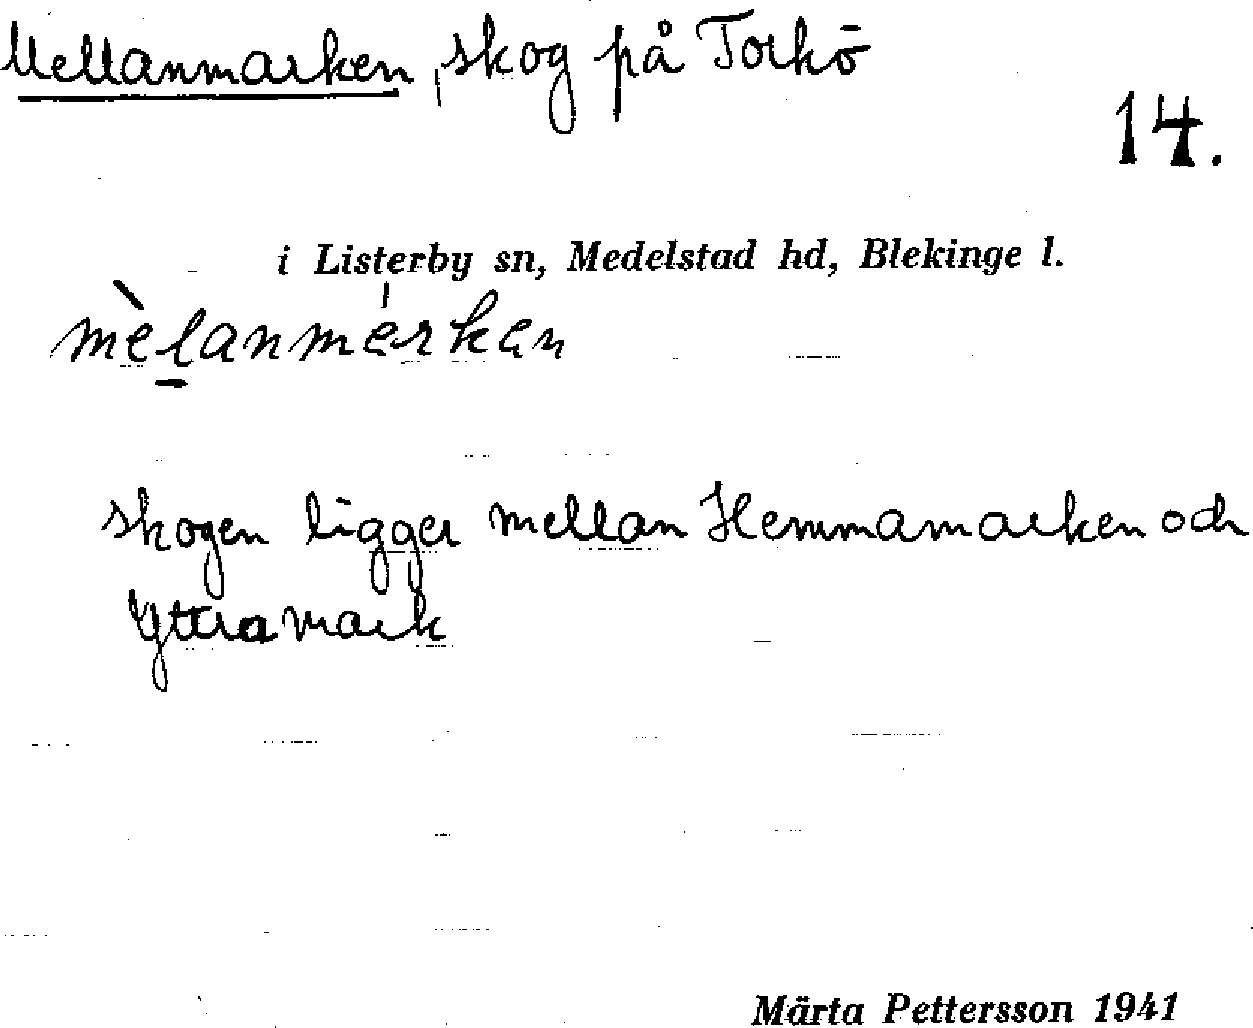 Mellanmarken, skog på Torkö
14.
i Listerby sn, Medelstad hd, Blekinge l.
mèlanmárkən
skogen ligger mellan Hemmamarken och
Yttramark
Märta Pettersson 1941